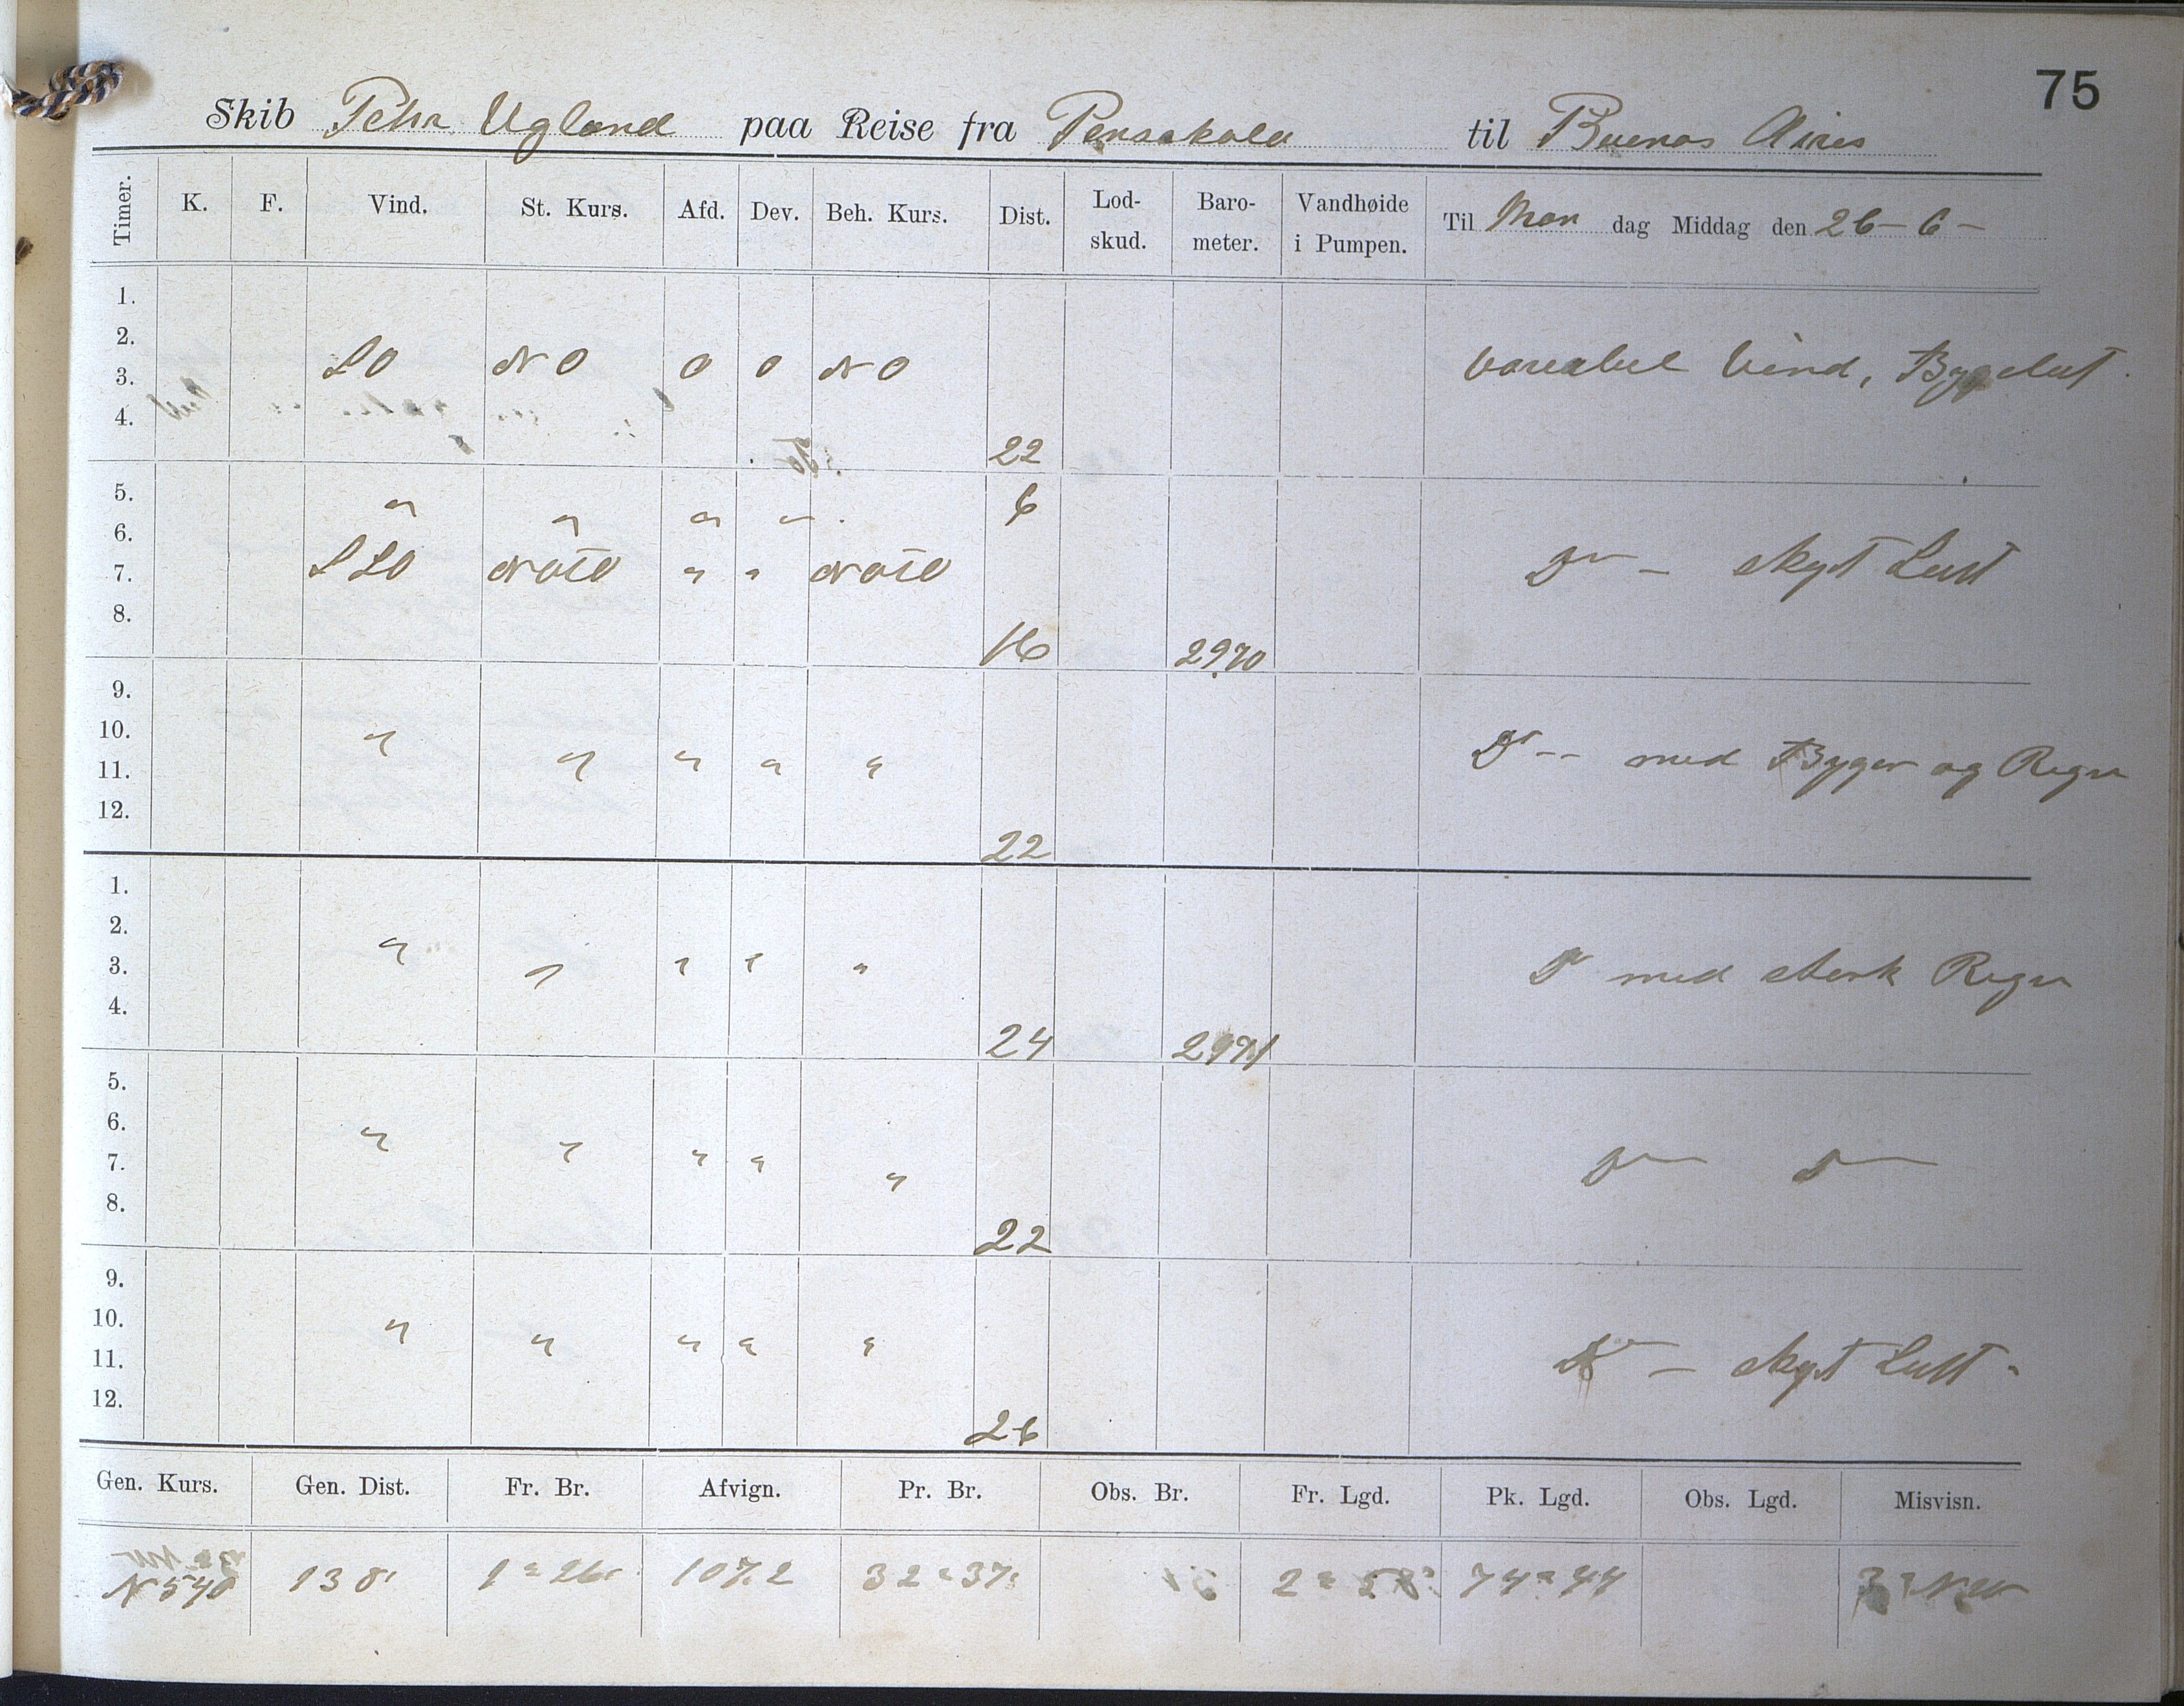 75
Skib Peter Ugland paa Reise fra Pensakola til Buenos Aires
Timer. K. F. Vind. St. Kurs. Afd. Dev. Beh. Kurs. Dist. Lod- skud. Baro- meter. Vandhøide i Pumpen. Til Man dag Middag den 26-6-
1.
2.
3. SO NO 0 0 NO variabel Vind, Bygeluft.
4. 22
5. " " " " 6
6.
7. SSO NOtO " " NOtO Do - skyt Luft
8. 16 2970
9.
10.
11. " " " " " Do -- med Byger og Regn
12. 22
1.
2.
3. " " " " " Do med sterk Regn
4. 24 2971
5.
6.
7. " " " " " Do Do
8. 22
9.
10.
11. " " " " " Do - skyt Luft -
12. 26
Gen. Kurs. Gen. Dist. Fr. Br. Afvign. Pr. Br. Obs. Br. Fr. Lgd. Pk. Lgd. Obs. Lgd. Misvisn.
N 540 138' 1°26' 107.2 32°37' 74°44